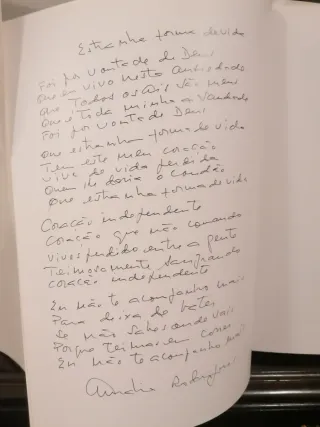 Estranha forma de vida
Foi por vontade de Deus
Que eu vivo nesta ansiedade
Que todos os ais são meus
Que é toda minha a saudade
Foi por vontade de Deus
Que estranha forma de vida
Tem este meu coração
Vive de vida perdida
Quem lhe daria o condão
Que estranha forma de vida
Coração independente
Coração que não comando
vives perdido entre a gente
Teimosamente sangrando
coração independente
Eu não te acompanho mais
Para deixa de bater
Se não sabes onde vais
Porque teimas em correr
Eu não te acompanho mais
Amália Rodrigues